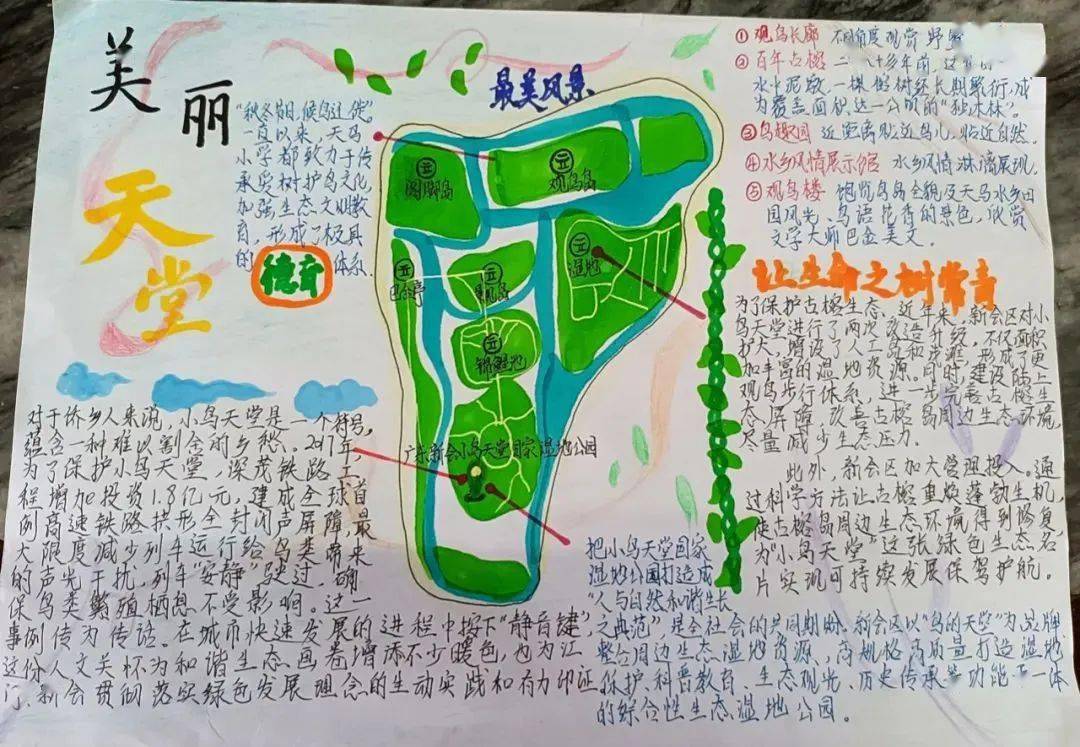 美丽
天堂
"秋冬前日,候鸟迁徙"
一直以来,天马
小学都致力于传
承爱树护鸟文化,
加强生态文明教
育,形成了极具
的德育体系.
最美风景
观鸟岛
湿地
巴金亭
锦鲤池
广东新会小鸟天堂国家湿地公园
① 观鸟长廊 不同角度观赏 野
② 百年古榕
水中泥墩,一棵榕树经长期繁衍,成
为覆盖面积达一公顷的"独木林"。
③鸟趣园 近距离贴近鸟儿,贴近自然.
④水乡风情展示馆 水乡风情淋漓展现.
⑤观鸟楼 饱览鸟岛全貌及天马水乡田
园风光、鸟语花香的景色,欣赏
文学大师巴金美文.
让生命之树常青
为了保护古榕生态,近年来,新会区对小
鸟天堂进行了两次改造升级,不仅面积
扩大,增设了人工岛和步道,形成了更
加丰富的湿地资源。同时,建设陆上
观鸟步行体系,进一步完善古榕生
态屏障,改善古榕岛周边生态环境,
尽量减少生态压力.
此外,新会区加大管理投入。通
过科学方法让古榕重焕蓬勃生机,
使古榕岛周边生态环境得到修复,
为"小鸟天堂"这张绿色生态名
片实现可持续发展保驾护航。
对于侨乡人来说,小鸟天堂是一个符号,
蕴含一种难以割舍的乡愁。2017年,
为了保护小鸟天堂,深茂铁路工
程增加投资1.8亿元,建成全球首
例高速铁路拱形全封闭声屏障,最
大限度减少列车运行给鸟类带来
的声光干扰,列车"安静"驶过,确
保鸟类繁殖栖息不受影响。这一
事例传为传话.在城市快速发展的进程中按下"静音键",
这份人文关怀为和谐生态画卷增添不少暖色,也为江
门、新会贯彻落实绿色发展理念的生动实践和有力印证.
把小鸟天堂国家
湿地公园打造成
"人与自然和谐生长
之典范",是全社会的共同期盼.新会区以"鸟的天堂"为品牌,
整合周边生态湿地资源、高规格高质量打造湿地
保护、科普教育、生态观光、历史传承等功能于一体
的综合性生态湿地公园。